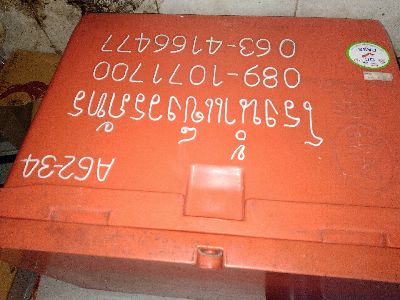 A62-34
โรงน้ำแข็งวรภัทร
089-1071700
063-4166477
QC
PASS